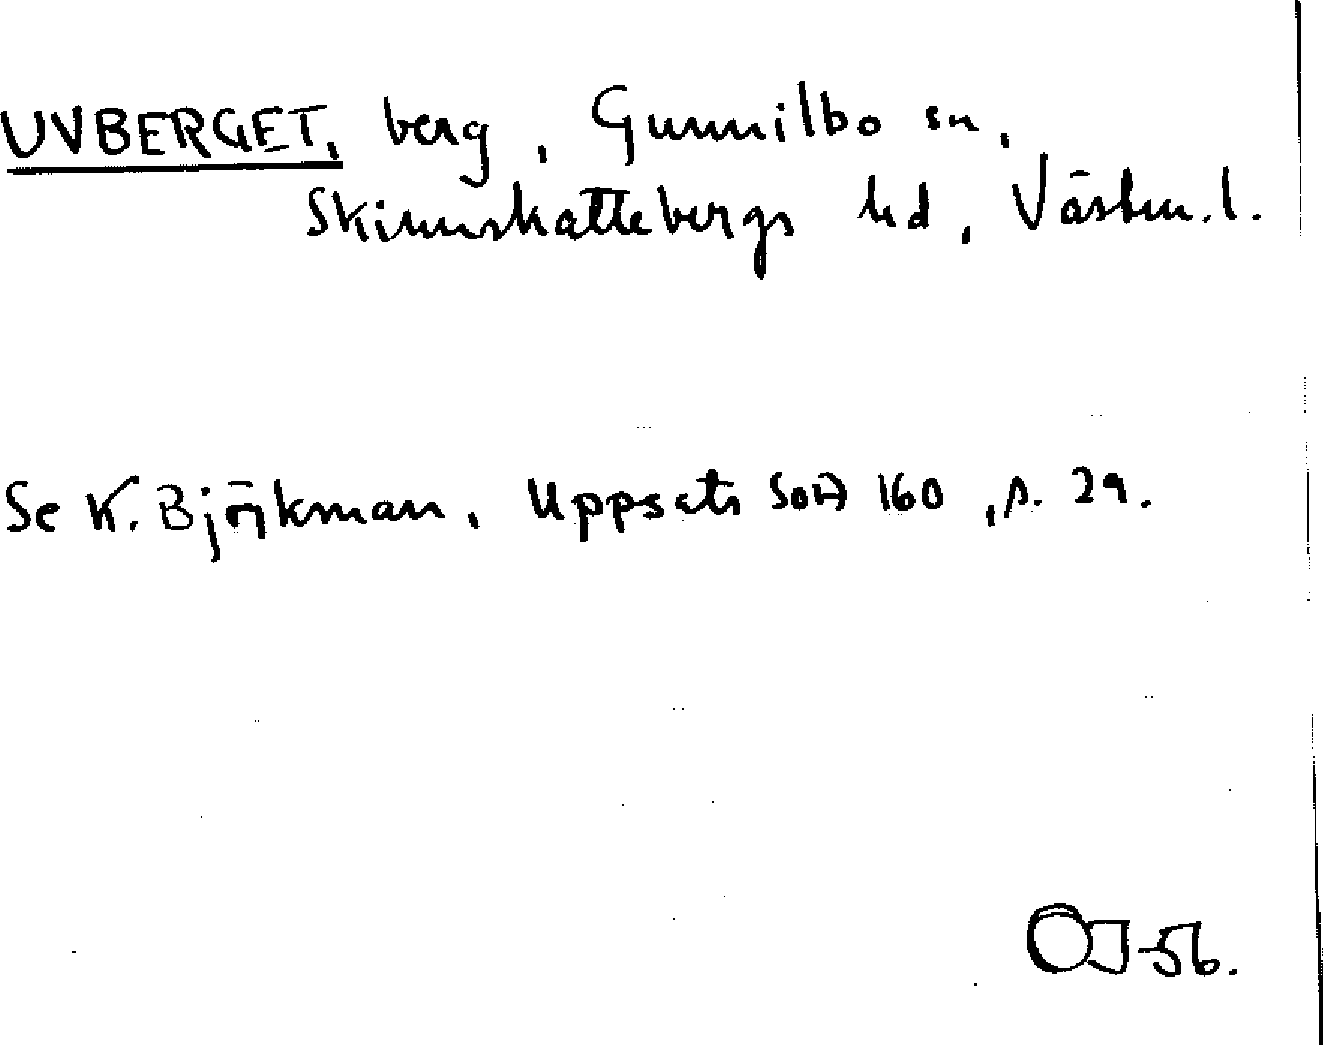 UVBERGET, berg, Gunnilbo sn,
Skinnskattebergs hd, Västm.l.
Se K. Björkman, Uppsats SOA 160, s. 29.
OJ-56.